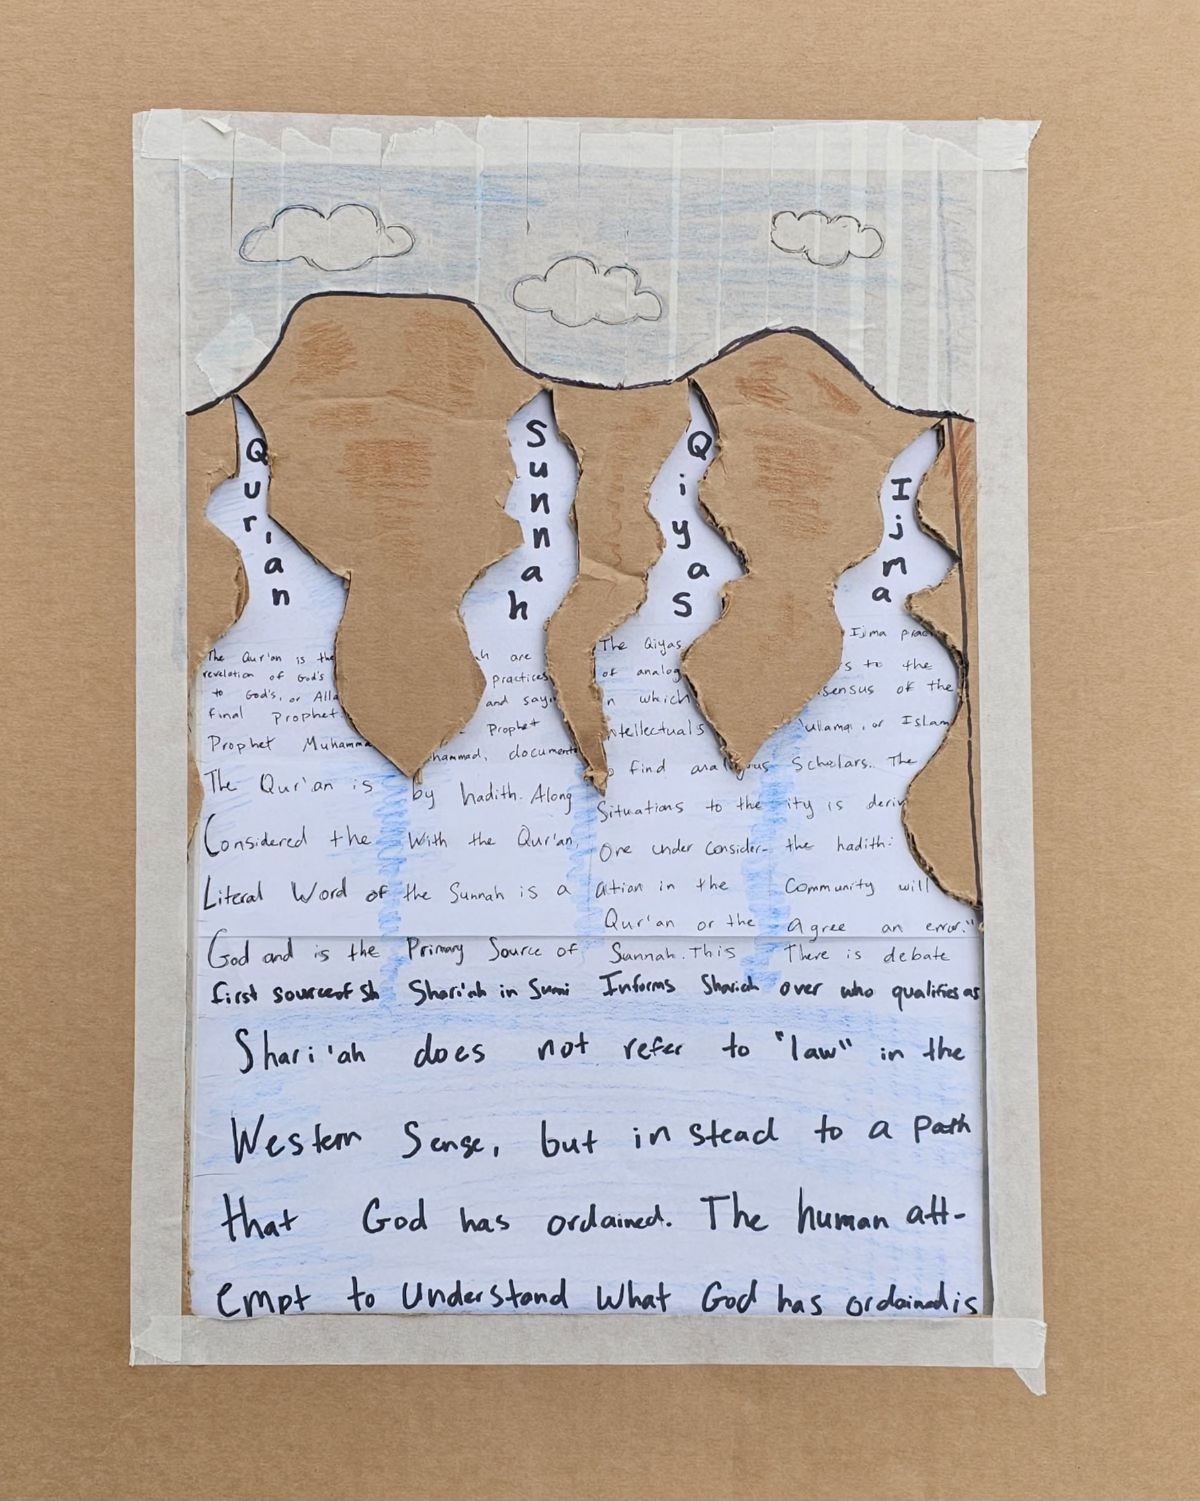 Qur'an
The Qur'an is the
revelation of God's
to God's, or Alla
final Prophet
Prophet Muhamma
The Qur'an is
Considered the
Literal Word of
God and is the
first source of Sh
Sunnah
ah are
practices
and say
Prophet
hammad, document
by hadith. Along
With the Qur'an,
the Sunnah is a
Primary Source of
Shari'ah in Sunni
Qiyas
The Qiyas
of analog
n which
ntellectuals
o find analogous
Situations to the
One under consider-
ation in the
Qur'an or the
Sunnah. This
Informs Shariah
Ijma
Ijma prac
s to the
sensus of the
'ullama, or Islam
Scholars. The
ity is deriv
the hadith:
Community will
Agree an error."
There is debate
over who qualifies as
Shari'ah does not refer to "law" in the
Western Sense, but in stead to a path
that God has ordained. The human att-
empt to Understand What God has ordained is